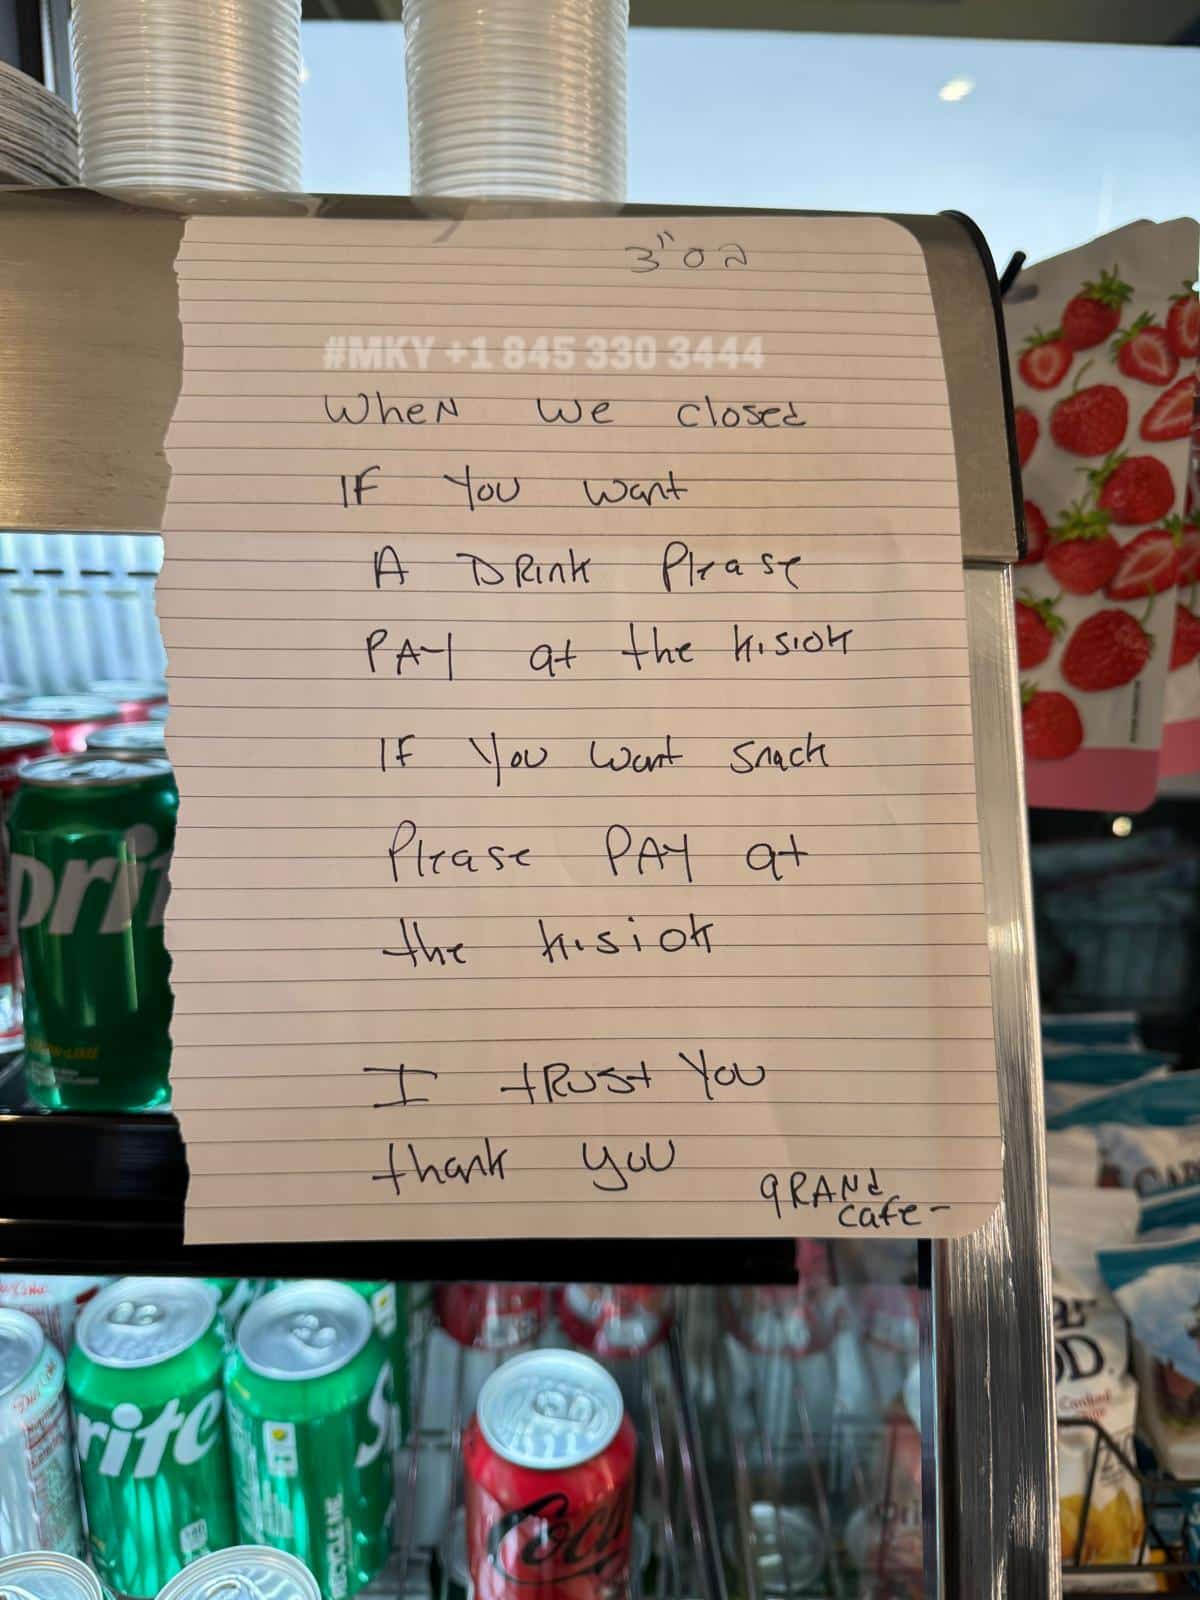 בס"ד
#MKY +1 845 330 3444
WheN We closed
IF You want
A DRink Please
PAY at the kisiok
IF You want snack
Please PAY at
the kisiok
I tRust You
thank you
gRANd
cafe-
Sprite
Sprite
Coca
RECYCLE ME